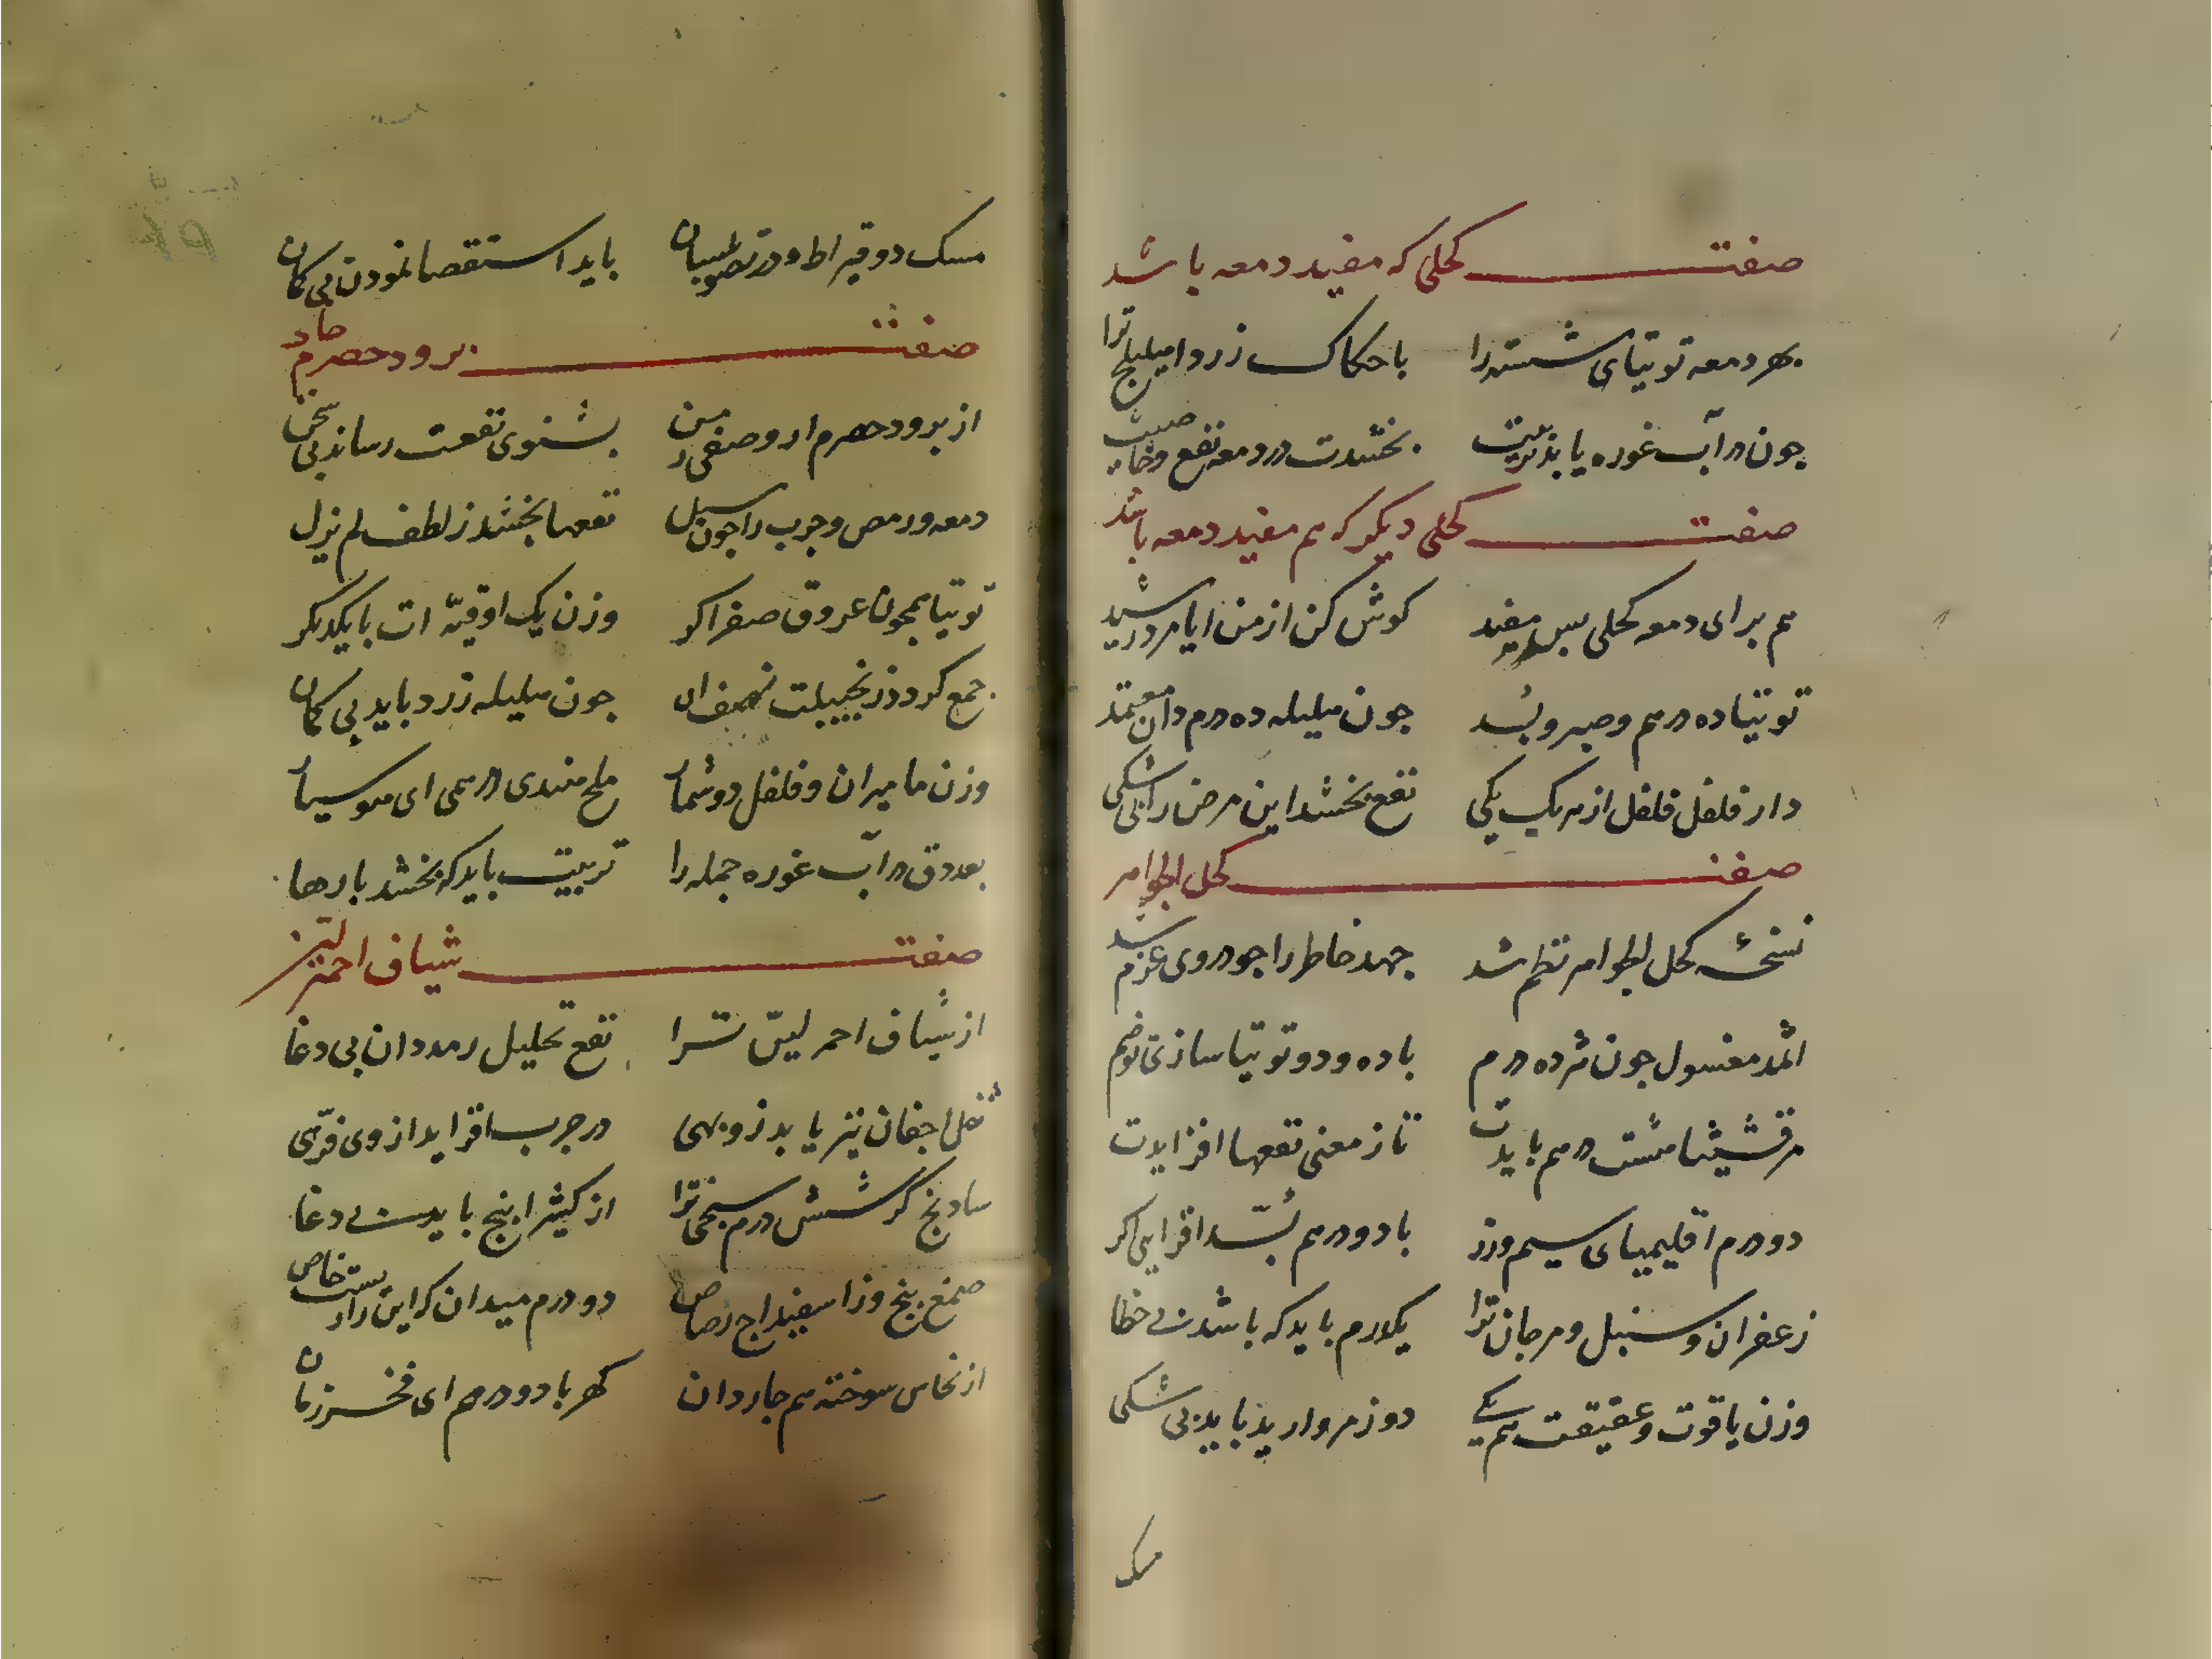 صفت کحلی که مفید دمعه باشد
بهر دمعه توتیای شسته را با حکاک زرد اهلیلج ترا
چون در آب غوره یابد تربیت بخشدت در دمعه نفع و خاصیت
صفت کحلی دیگر که هم مفید دمعه باشد
هم برای دمعه کحلی بس مفید کوش کن از من ایا مرد رشید
توتیا ده درهم و صبر و بُسد چون هلیله ده درم دان معتمد
دار فلفل فلفل از هر یک یکی نفع بخشد این مرض را بی شکی
صفت کحل الجواهر
نسخهٔ کحل الجواهر نظم شد جهد خاطر را چو در وی عزم شد
اثمد مغسول چون شد ده درم با ده و دو توتیا سازی تو ضم
مرقشیثا هشت درهم بایدت تا ز معنی نفعها افزایدت
دو درم اقلیمیای سیم و زر با دو درهم بُسّد افزایی اکر
زعفران و سنبل و مرجان ترا یکدرم باید که باشد بی خطا
وزن یاقوت و عقیقت هم یکی دو ز مروارید باید بی شکی
مسک
مسک دو قیراط و در باید استقصا نمودن بی کمان
صفت برود حصرم
از برود حصرم ار وصفی ز من بشنوی نفعت رساند بی سخن
دمعه و رمص و جرب را چون سبل نفعها بخشد ز لطف لم یزل
توتیا همچون عروق صفرا کر وزن یک اوقیّه ات با یکدیگر
جمع کردد زنجبیلت نصف ان چون هلیله زرد باید بی کمان
وزن مامیران و فلفل دو شمار ملح هندی درهمی ای هوسیار
بعد دق در آب غوره جمله را تربیت باید که بخشد بارها
صفت شیاف احمر لین
از شیاف احمر لیّن ترا نفع تحلیل رمد دان بی دغا
ثقل اجفان نیز یابد زو بهی در جرب افزاید از وی فرّهی
سادنج کر شش درم سنجی ترا از کثیرا پنج باید بی دغا
صمغ پنج و زاسفیداج رصاص دو درم میدان که این را دست خاص
از نحاس سوخته هم چار دان کهربا دو درهم ای فخر زمان